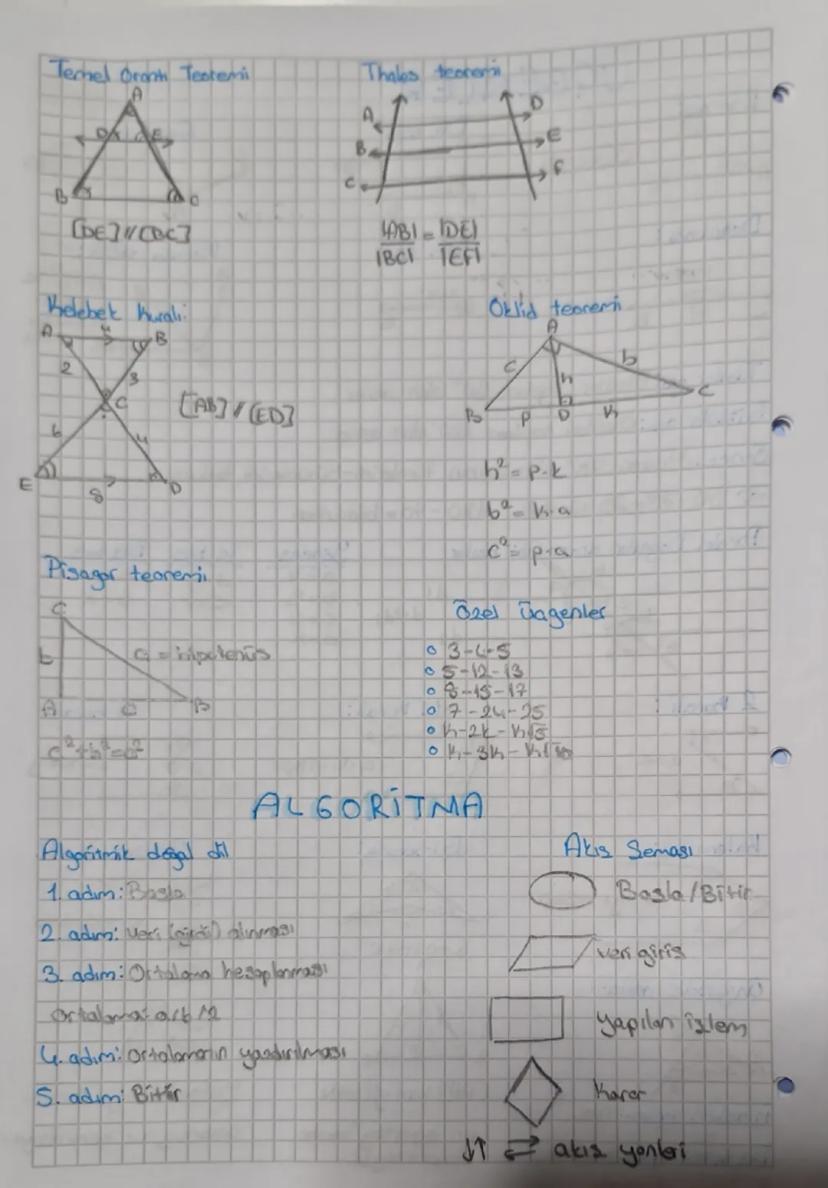 Temel Orantı Teoremi
A
D E
B C
[DE]//[BC]
Thales teoremi
A D
B E
C F
|AB| = |DE|
|BC| |EF|
Kelebek Kuralı
A 4 B
2 3
C
[AB]//[ED]
6 4
E 8 D
Öklid teoremi
A
c b
h
B p D k C
h² = p.k
b² = k.a
c² = p.a
Pisagor teoremi
C
b a = hipotenüs
A c B
Özel Üçgenler
3-4-5
5-12-13
8-15-17
7-24-25
k-2k-k√5
k-3k-k√10
ALGORİTMA
Algoritmik doğal dil
1. adım: Başla
2. adım: veri (girdi) alınması
3. adım: Ortalama hesaplanması
Ortalama: a+b/2
4. adım: Ortalamanın yazdırılması
5. adım: Bitir
Akış Şeması
Başla/Bitir
veri giriş
yapılan işlem
Karar
↓↑ ⇄ akış yönleri